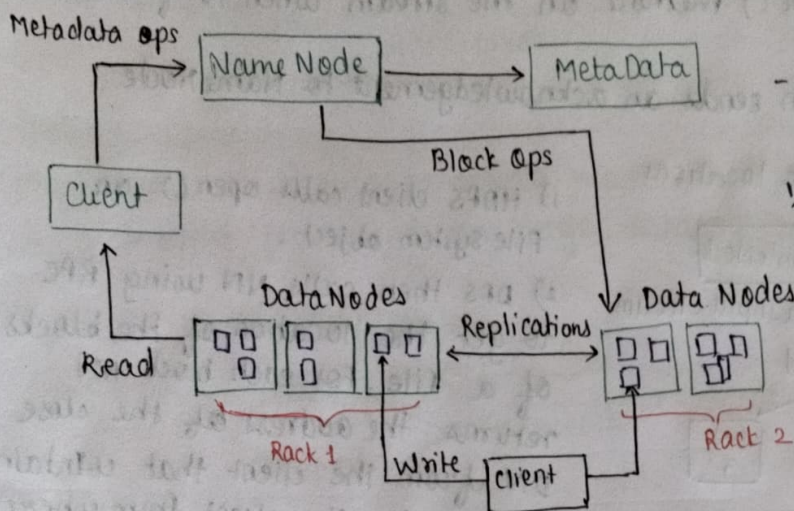 Metadata ops
Name Node
MetaData
Block Ops
Client
DataNodes
Data Nodes
Replications
Read
Rack 1
Rack 2
Write
Client